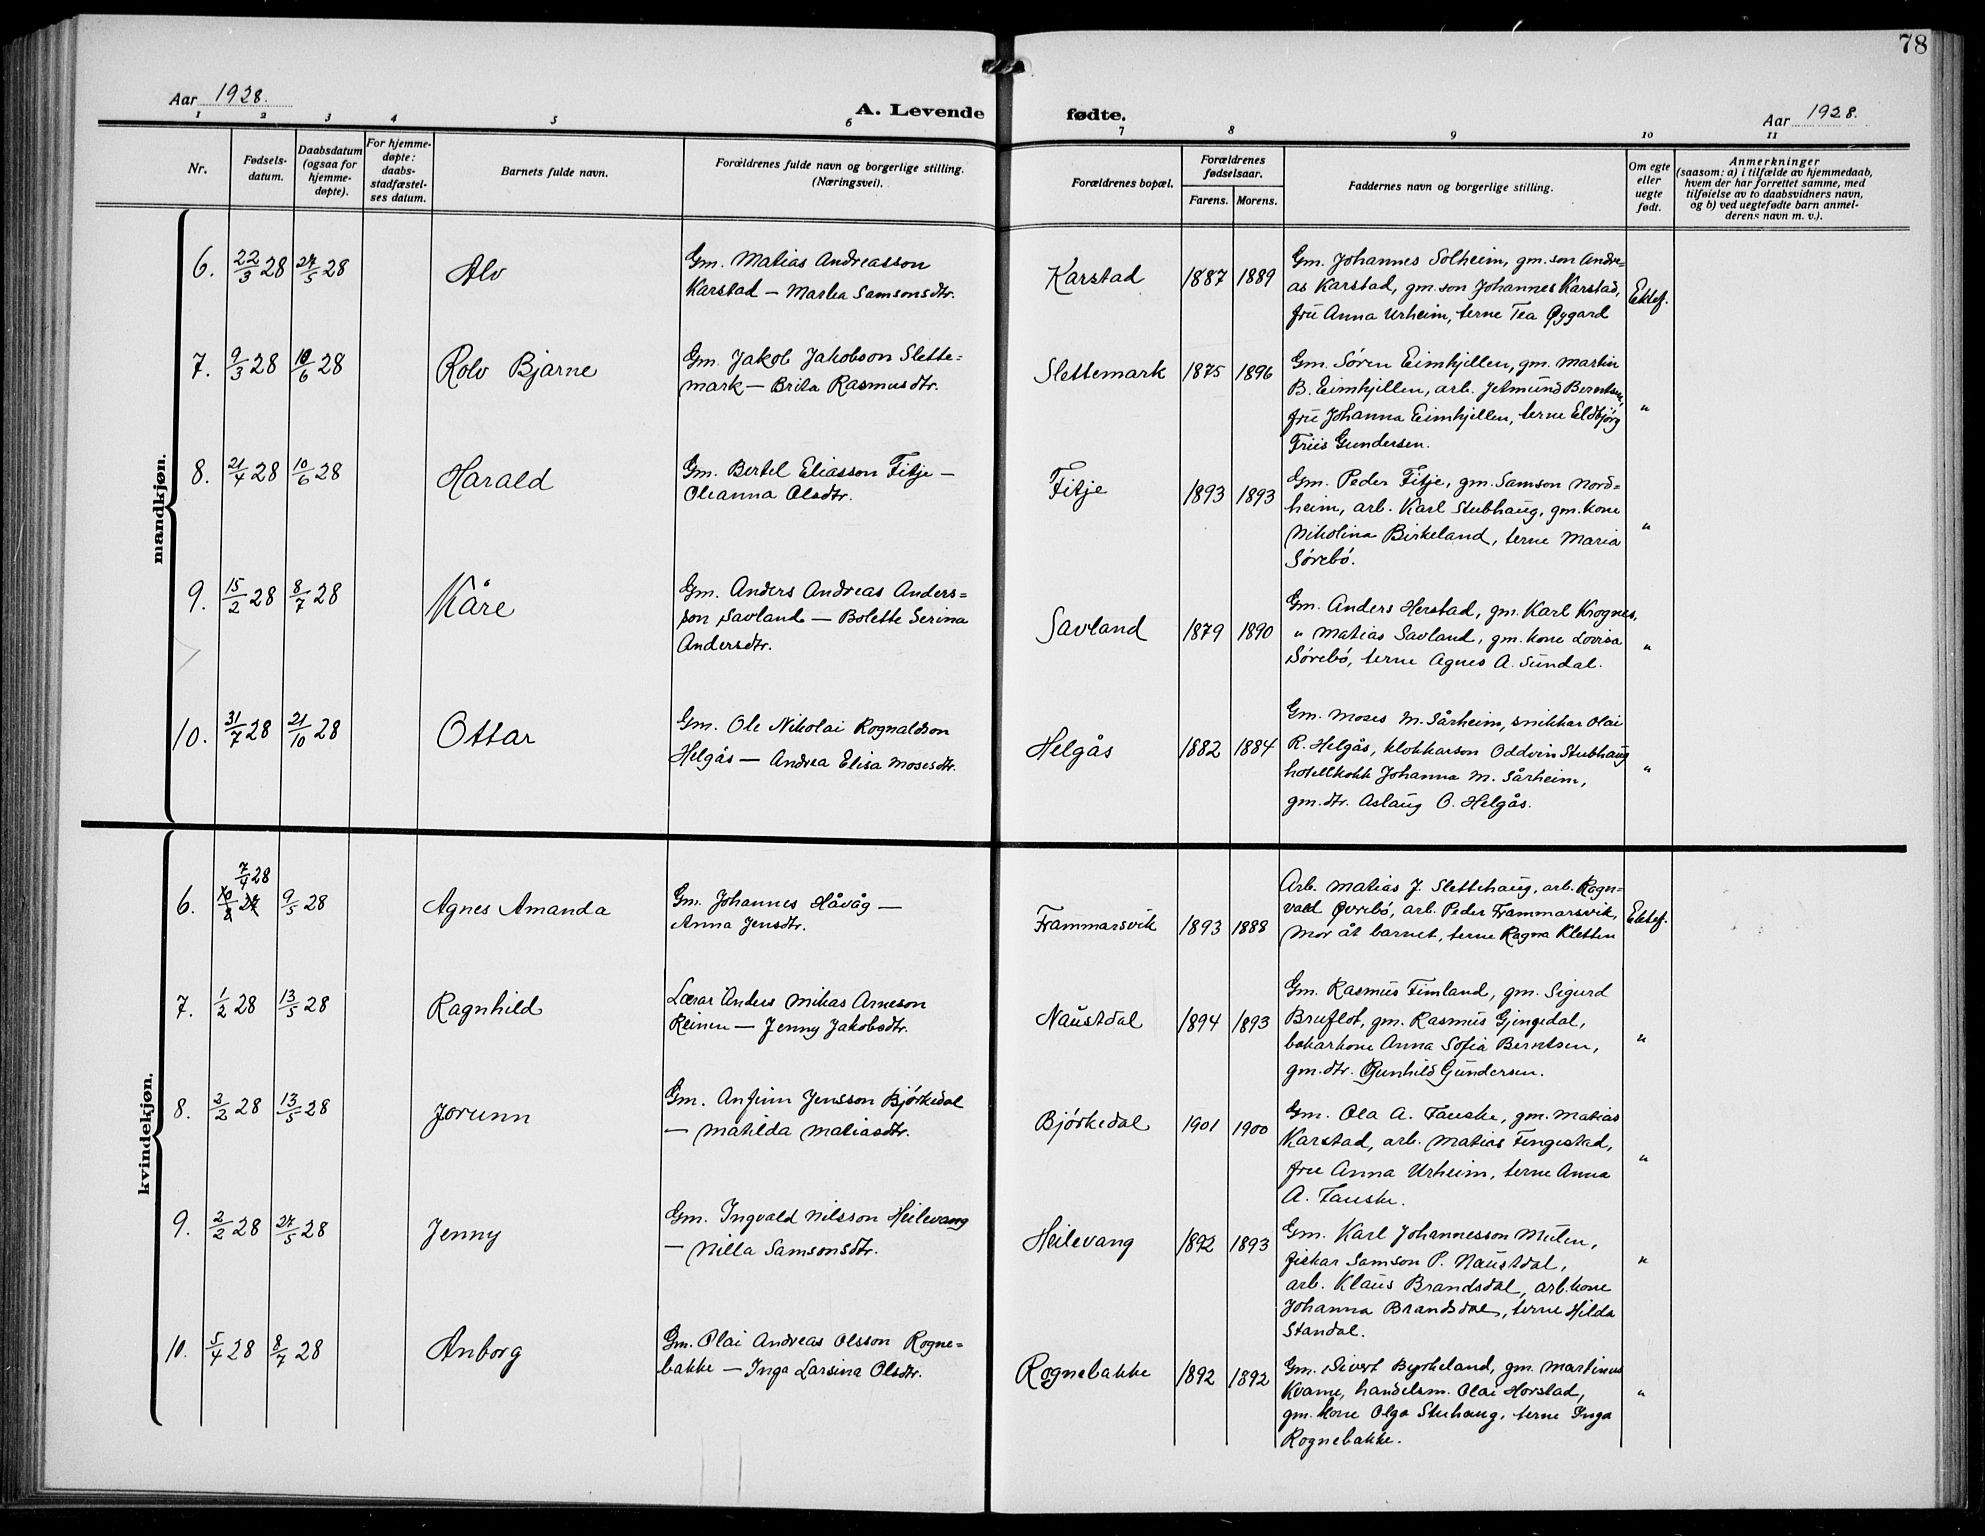 78
Aar 1928.
A. Levende fødte.
Aar 1928.
1 2 3 4 5 6 7 8 9 10 11
Nr.
Fødsels-
datum.
Daabsdatum
(ogsaa for
hjemme-
døpte).
For hjemme-
døpte:
daabs-
stadfæstel-
ses datum.
Barnets fulde navn.
Forældrenes fulde navn og borgerlige stilling.
(Næringsvei).
Forældrenes bopæl.
Forældrenes
fødselsaar.
Farens. Morens.
Faddernes navn og borgerlige stilling.
Om egte
eller
uegte
født.
Anmerkninger
(saasom: a) i tilfælde av hjemmedaab,
hvem der har forrettet samme, med
tilføielse av to daabsvidners navn,
og b) ved uegtefødte barn anmel-
derens navn m. v.).
mandkjøn.
6. 22/3 28 27/5 28 Alv
Gm. Matias Andreasson
Karstad — Marta Samsonsdtr.
Karstad 1887 1889
Gm. Johannes Solheim, gm. son Andre-
as Karstad, gm. son Johannes Karstad,
fru Anna Urheim, terne Tea Øygard
Ektef.
7. 9/3 28 10/6 28 Rolv Bjarne
Gm. Jakob Jakobson Slette-
mark — Brita Rasmusdtr.
Slettemark 1875 1896
Gm. Søren Eimhjellen, gm. Martin
B. Eimhjellen, arb. Jetmund Berntsen,
fru Johanna Eimhjellen, terne Eldbjørg
Friis Gundersen.
"
8. 21/4 28 10/6 28 Harald
Gm. Bertel Eliasson Fitje —
Oleanna Olsdtr.
Fitje 1893 1893
Gm. Peder Fitje, gm. Samson Nord-
heim, arb. Karl Stubhaug, gm. kone
Nikolina Birkeland, terne Maria
Sørebø.
"
9. 15/2 28 8/7 28 Kåre
Gm. Anders Andreas Anders-
son Savland — Bolette Serina
Andersdtr.
Savland 1879 1890
Gm. Anders Herstad, gm. Karl Krognes,
" Matias Savland, gm. kone Lovisa
Sørebø, terne Agnes A. Sundal.
"
10. 31/7 28 21/10 28 Ottar
Gm. Ole Nikolai Rognaldson
Helgås — Andrea Elisa Mosesdtr.
Helgås 1882 1884
Gm. Moses M. Sårheim, snikkar Olai
R. Helgås, klokkarson Oddvin Stubhaug
hotellkokk Johanna M. Sårheim,
gm. dtr. Aslaug O. Helgås.
"
kvindekjøn.
7/4 28
6. 9/5 28 Agnes Amanda
Gm. Johannes Håvåg —
Anna Jensdtr.
Frammarsvik 1893 1888
Arb. Matias J. Slettehaug, arb. Ragn-
vald Øvrebø, arb. Peder Frammarsvik,
Mor åt barnet, terne Ragna Kletten
Ektef.
7. 1/2 28 13/5 28 Ragnhild
Lærar Anders Mikas Arneson
Reinen — Jenny Jakobsdtr.
Naustdal 1894 1893
Gm. Rasmus Fimland, gm. Sigurd
Bruflot, gm. Rasmus Gjengedal,
bakarkone Anna Sofia Berntsen,
gm. dtr. Gunhild Gundersen.
"
8. 2/2 28 13/5 28 Jorunn
Gm. Anfinn Jensson Bjørkedal
— Matilda Matiasdtr.
Bjørkedal 1901 1900
Gm. Ola A. Fauske, gm. Matias
Karstad, arb. Matias Fengestad,
fru Anna Urheim, terne Anna
A. Fauske.
"
9. 2/2 28 27/5 28 Jenny
Gm. Ingvald Nilsson Heilevang
— Nilla Samsonsdtr.
Heilevang 1892 1893
Gm. Karl Johannesson Mulen,
fiskar Samson P. Naustdal,
arb. Klaus Brandsdal, arb. kone
Johanna Brandsdal, terne Hilda
Standal.
"
10. 5/4 28 8/7 28 Anborg
Gm. Olai Andreas Olsson Rogne-
bakke — Inga Larsina Olsdtr.
Rognebakke 1892 1892
Gm. Sivert Byrkeland, gm. Martinus
Kvame, handelsm. Olai Horstad,
gm. kone Olga Stuhaug, terne Inga
Rognebakke.
"